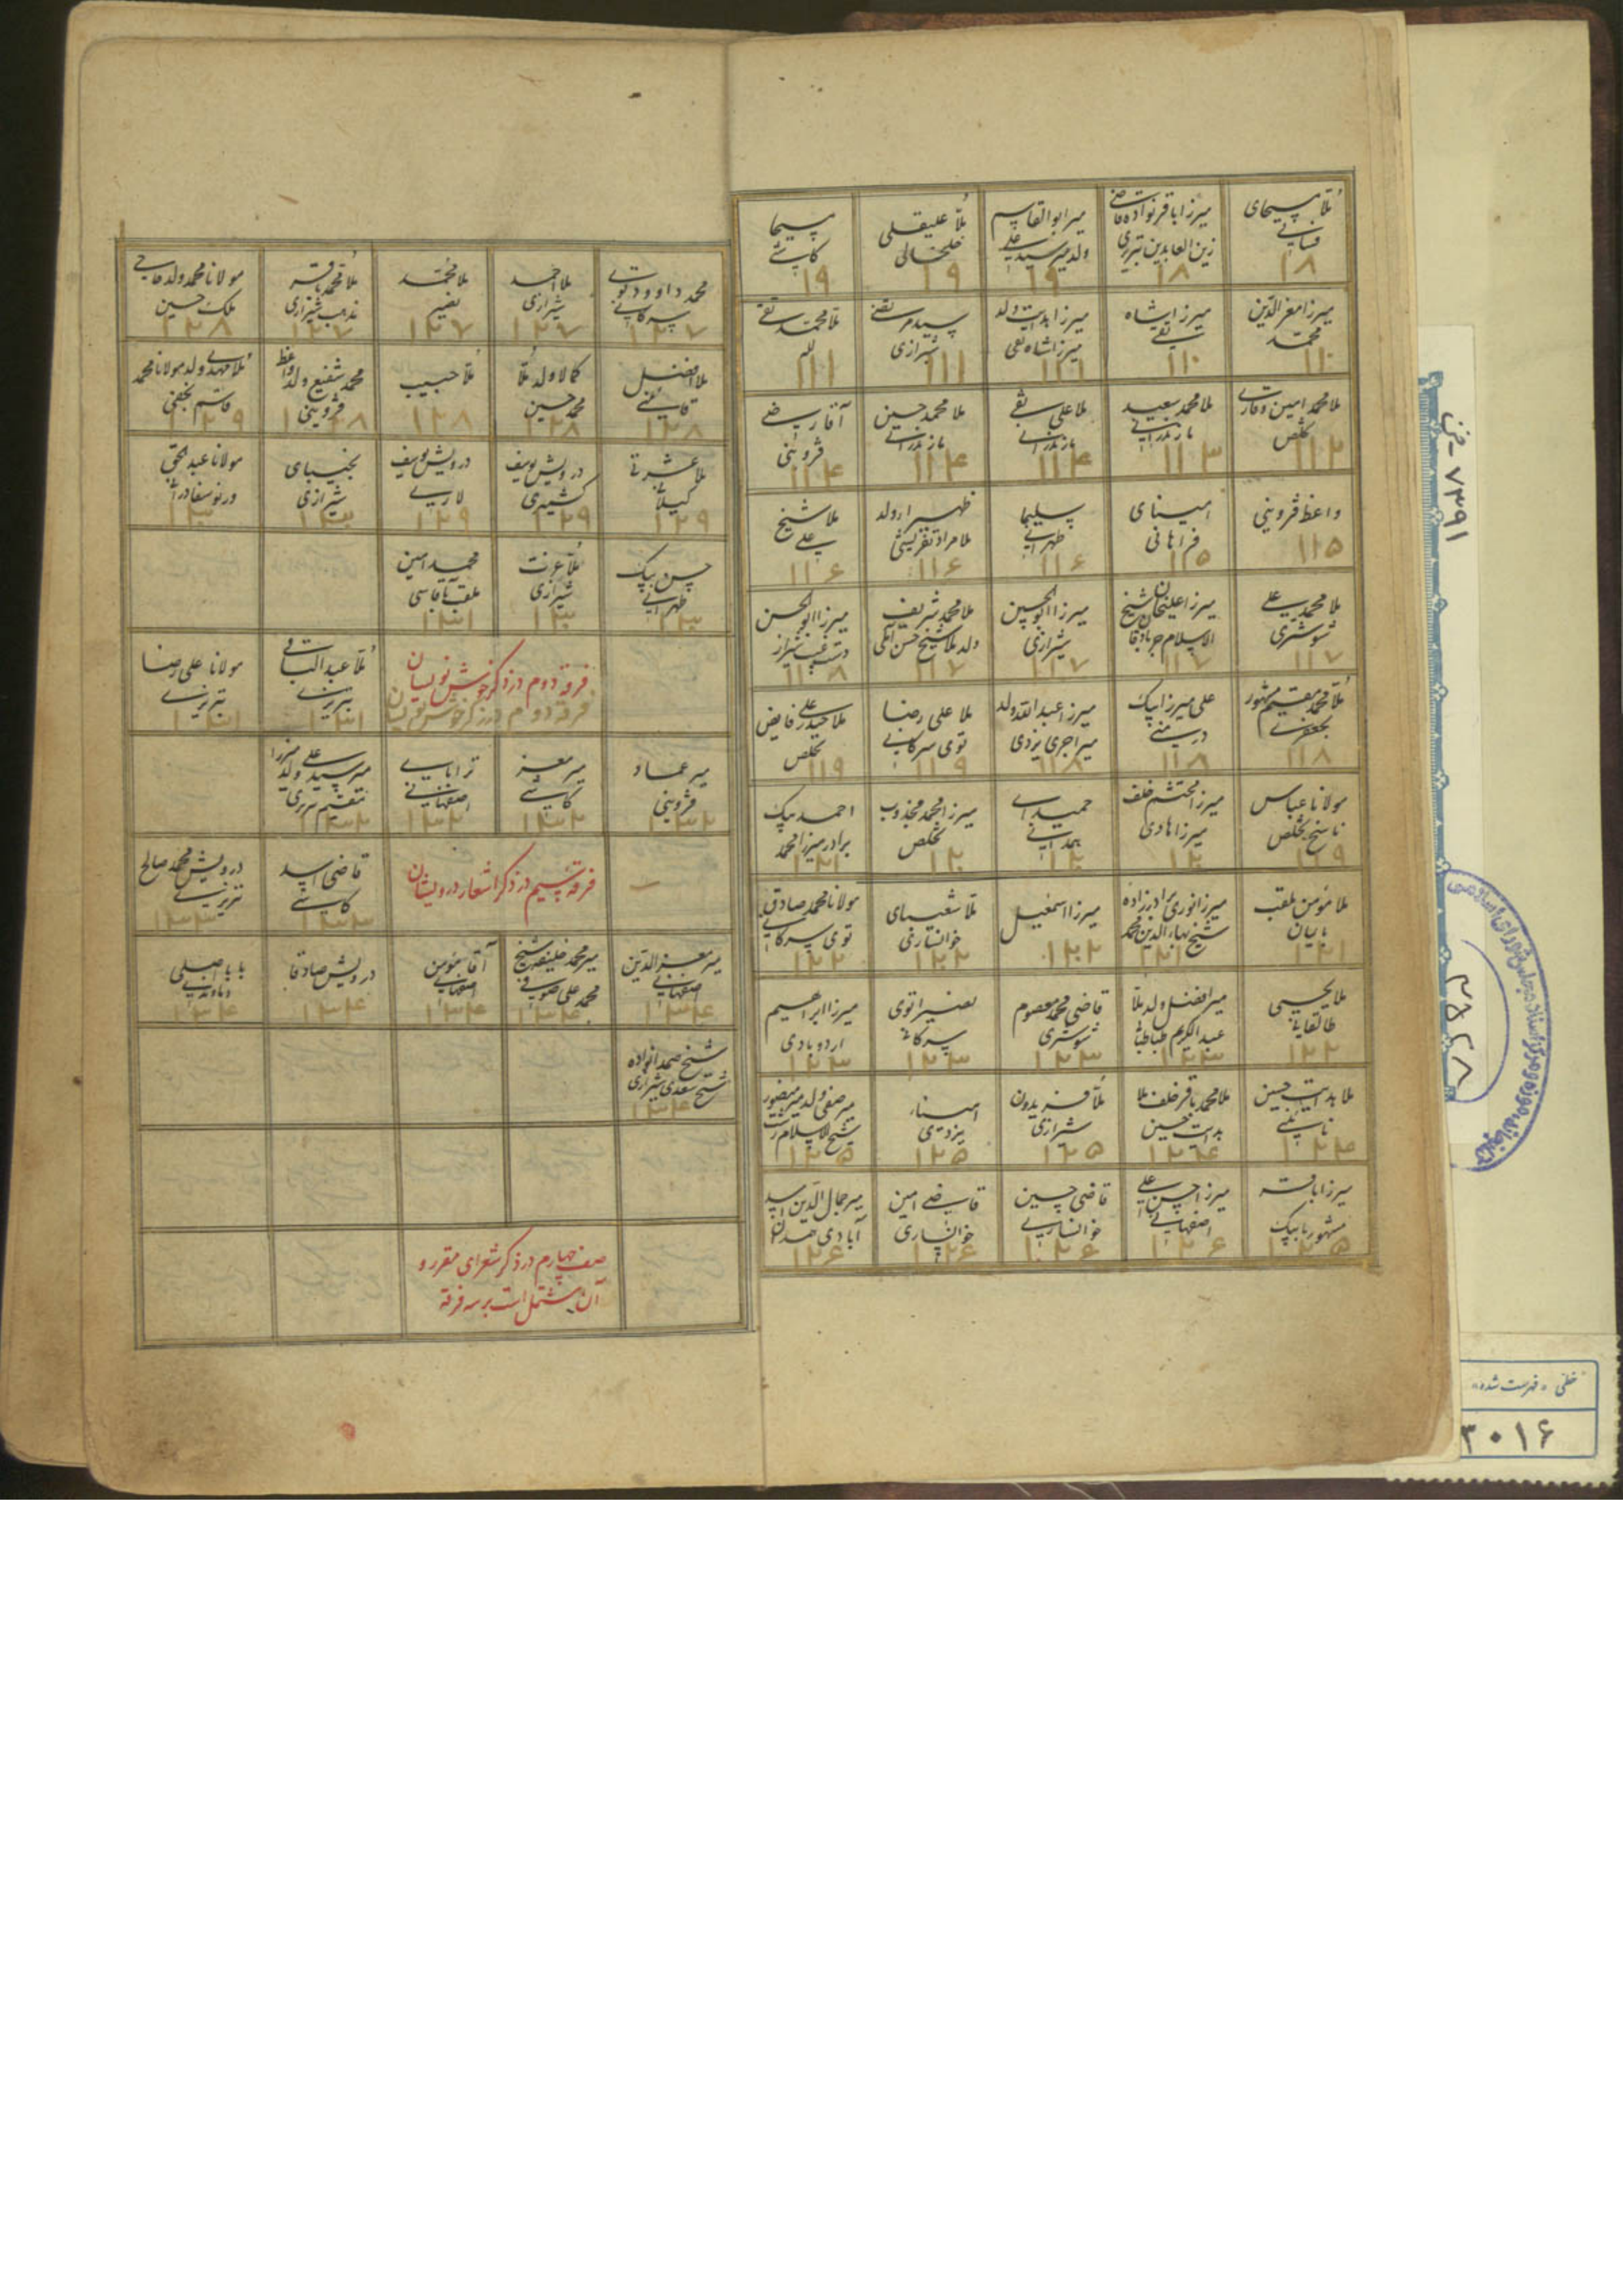 ملا مسیحای
فسائی
۱۸
میرزا باقر نواده قاضی
زین العابدین تبریزی
۱۸
میر ابوالقاسم
ولد میر سید علی
۱۹
ملا علیقلی
خلخالی
۱۹
مسیحا
کاشی
۱۹
میرزا معز الدین
محمد
۱۱۰
میرزا شاه
تقی
۱۱۰
میرزا هدایت ولد
میرزا شاه تقی
۱۱۱
سید مرتضی
شیرازی
۱۱۱
ملا محمد تقی
۱۱۱
ملا محمد امین وقاری
تخلص
۱۱۲
ملا محمد سعید
مازندرانی
۱۱۳
ملا علی نقی
مازندرانی
۱۱۴
ملا محمد حسین
مازندرانی
۱۱۴
آقا رضی
قزوینی
۱۱۴
واعظ قزوینی
۱۱۵
امینای
فراهانی
۱۱۵
سلیما
طهرانی
۱۱۶
ظهیرا ولد
ملا مراد تفریشی
۱۱۶
ملا شیخ
علی
۱۱۶
ملا محمد علی
شوشتری
۱۱۷
میرزا علیخان شیخ
الاسلام جربادقان
۱۱۷
میرزا ابوالحسین
شیرازی
۱۱۷
ملا محمد شریف
ولد ملا شیخ حسن
۱۱۷
میرزا ابوالحسن
شیراز
۱۱۸
ملا محمد مقیم مشهور
۱۱۸
علی میرزا بیک
۱۱۸
میرزا عبدالله ولد
میر اجری یزدی
۱۱۸
ملا علی رضا
توی سرکانی
۱۱۹
ملا حیدر علی فایض
تخلص
۱۱۹
مولانا عباس
ناسخ تخلص
۱۱۹
میرزا محتشم خلف
میرزا هادی
۱۲۰
حمیدای
همدانی
۱۲۰
میرزا محمد مجذوب
تخلص
۱۲۰
احمد بیک
برادر میرزا محمد
۱۲۱
ملا مومن ملقب
بابیان
۱۲۱
میرزا نوری برادرزاده
شیخ بهاءالدین محمد
۱۲۱
میرزا اسمعیل
۱۲۲
ملا شعیبای
خوانساری
۱۲۲
مولانا محمد صادق
توی سرکانی
۱۲۲
ملا یحیی
طالقانی
۱۲۲
میر افضل ولد ملا
عبدالکریم طباطبا
۱۲۳
قاضی محمد معصوم
شوشتری
۱۲۳
نصیرا توی
سرکانی
۱۲۳
میرزا ابراهیم
اردوبادی
۱۲۳
ملا هدایت حسین
نائینی
۱۲۴
ملا محمد باقر خلف ملا
هدایت حسین
۱۲۴
ملا فریدون
شیرازی
۱۲۵
امینا
یزدی
۱۲۵
میر صفی ولد میر منصور
شیخ الاسلام
۱۲۵
میرزا باقر
مشهور بابیک
۱۲۵
میرزا حسن علی
اصفهانی
۱۲۶
قاضی حسین
خوانساری
۱۲۶
قاضی امین
خوانساری
۱۲۶
میر جمال الدین اسد
آبادی همدان
۱۲۶
محمد داوود توی
سرکانی
۱۲۷
ملا احمد
شیرازی
۱۲۷
ملا محمد
نصیر
۱۲۷
ملا محمد باقر
مذهب شیرازی
۱۲۷
مولانا محمد ولد حاجی
ملک حسین
۱۲۸
ملا افضل
قاینی
۱۲۸
کمالا ولد ملا
محمد حسین
۱۲۸
ملا حبیب
۱۲۸
محمد شفیع ولد واعظ
قزوینی
۱۲۸
ملا مهدی ولد مولانا محمد
قاسم نجفی
۱۲۹
ملا عشرتی
گیلانی
۱۲۹
درویش یوسف
کشمیری
۱۲۹
درویش یوسف
لاری
۱۲۹
نجیبای
شیرازی
۱۳۰
مولانا عبدالحق
۱۳۰
حسن بیک
طهرانی
۱۳۰
ملا عزت
شیرازی
۱۳۰
محمد امین
ملقب بآقاسی
۱۳۱
فرقه دوم در ذکر خوش نویسان
فرقه دوم در ذکر خوش نویسان
ملا عبدالباقی
تبریزی
۱۳۱
مولانا علی رضا
تبریزی
۱۳۱
میر عماد
قزوینی
۱۳۲
میر معز
کاشی
۱۳۲
ترابای
اصفهانی
۱۳۲
میر سید علی ولد میرزا
مقیم تبریزی
۱۳۲
فرقه سیم در ذکر اشعار درویشان
قاضی اسد
کاشی
۱۳۳
درویش محمد صالح
تبریزی
۱۳۳
میر معز الدین
اصفهانی
۱۳۴
میر محمد خلیفه شیخ
محمد علی صوفی
۱۳۴
آقا مومن
اصفهانی
۱۳۴
درویش صادقا
۱۳۴
بابا اصلی
دماوندی
۱۳۴
شیخ صمدا نواده
شیخ سعدی شیرازی
۱۳۴
صف چهارم در ذکر شعرای مقرر و
آن مشتمل است بر سه فرقه
۷۳۹۱
۳۸۲۸
خطی - فهرست شده
۳۰۱۶